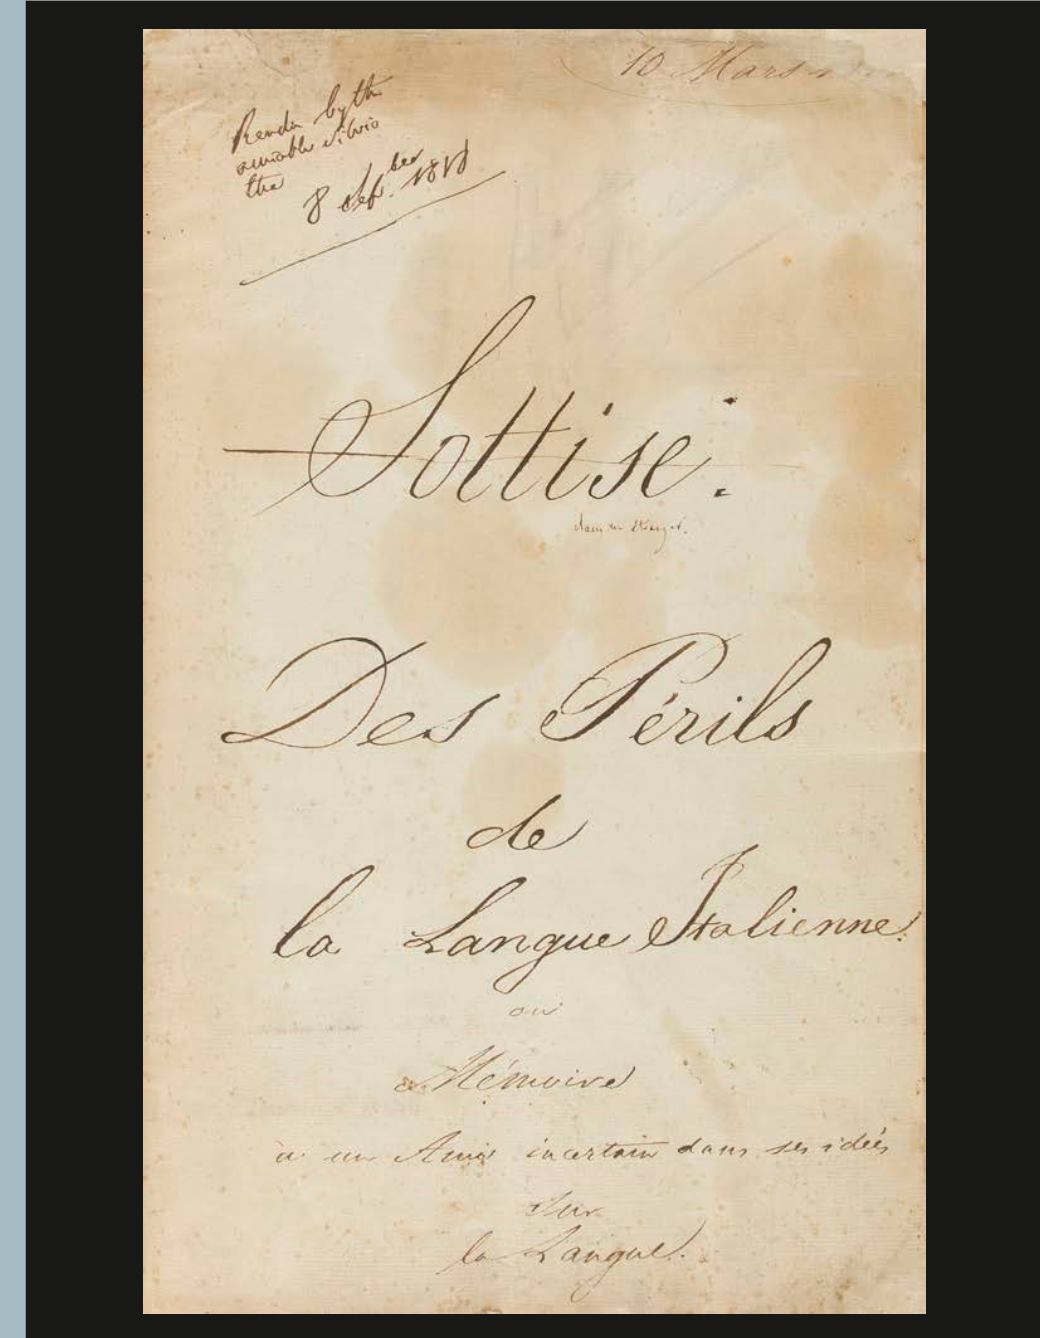 10 Mars
Rendu by the
amiable Silvio
the
8 Sep.ber 1818
Sottise.
dans un étranger.
Des Périls
de
la Langue Italienne.
ou
Mémoire
à un Ami incertain dans ses idées
sur
la Langue.